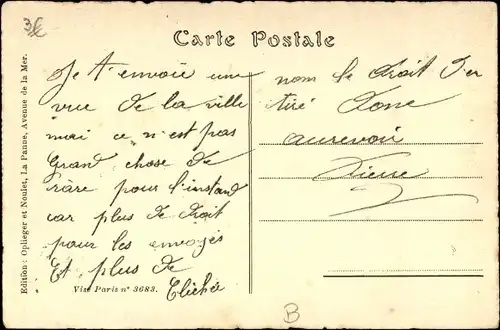 3€
Carte Postale
Edition : Oplieger et Noulet, La Panne, Avenue de la Mer.
Je t'envoie une
vue de la ville
mai ce n'est pas
Grand chose de
rare pour l'instand
car plus de droit
pour les envoyés
Et plus de
Clichée
Visé Paris n° 3683.
nom le droit d'en
tiré Donc
aurevoir
Pierre
B